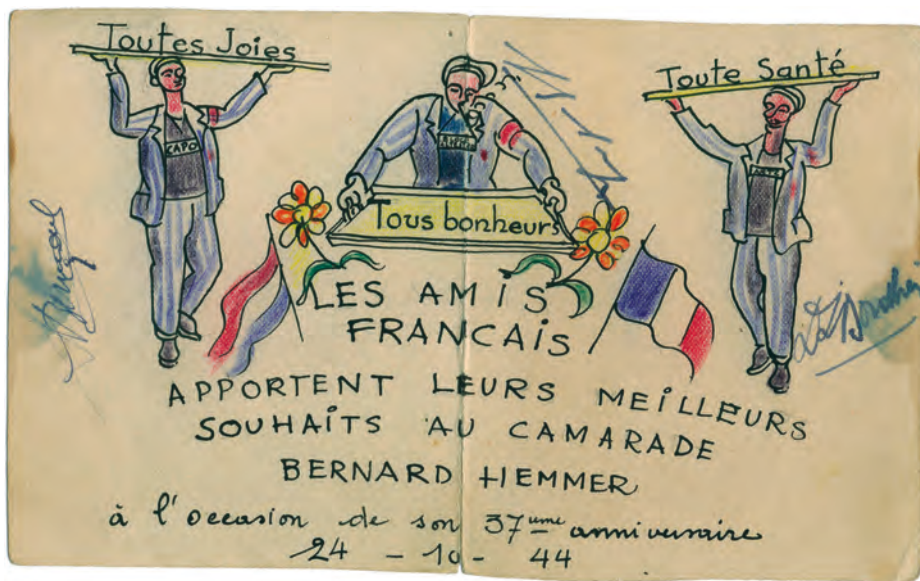 Toutes Joies
Tous bonheurs
Toute Santé
CAPO
LES AMiS
FRANCAiS
APPORTENT LEURS MEiLLEURS
SOUHAiTS AU CAMARADE
BERNARD HEMMER
à l'occasion de son 37ume anniversaire
24 - 10 - 44